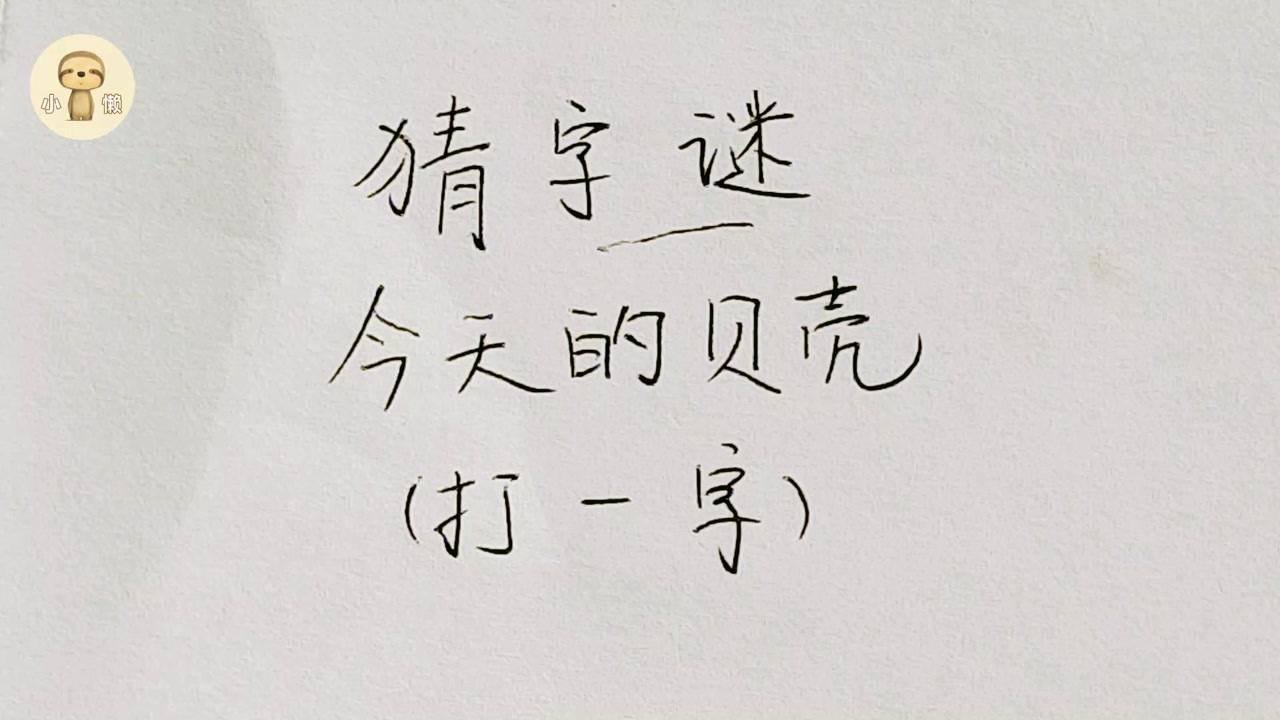 小懒
猜字谜
今天的贝壳
(打一字)